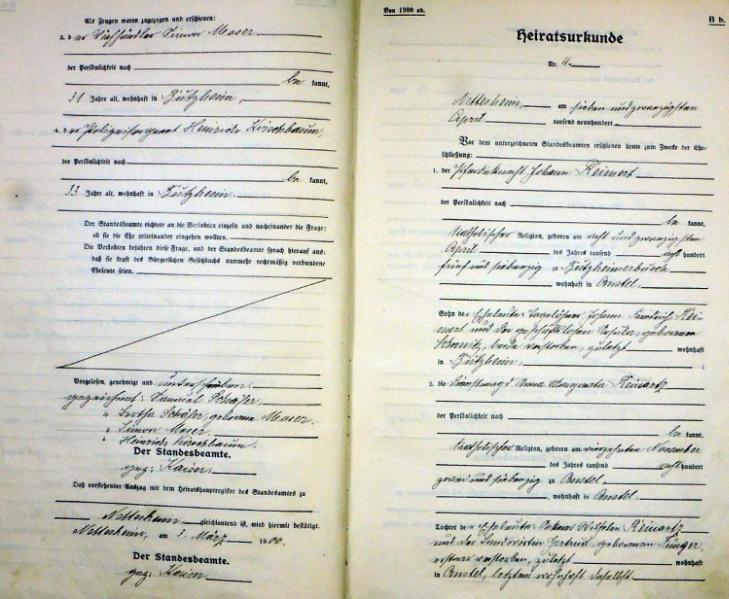 Als Zeugen waren zugezogen und erschienen:
Viehhändler Simon Moser
der Persönlichkeit nach
be kannt,
31 Jahre alt, wohnhaft in Bützheim,
Polizeisergeant Heinrich Kirschbaum,
der Persönlichkeit nach
be kannt,
33 Jahre alt, wohnhaft in Bützheim.
Der Standesbeamte richtete an die Verlobten einzeln und nacheinander die Frage:
ob sie die Ehe miteinander eingehen wollten.
Die Verlobten bejahten diese Frage, und der Standesbeamte sprach hierauf aus:
daß sie kraft des Bürgerlichen Gesetzbuchs nunmehr rechtmäßig verbundene
Eheleute seien.
Vorgelesen, genehmigt und unterschrieben.
gezeichnet: Samuel Schäfer
" Bertha Schäfer, geborene Moser.
" Simon Moser
" Heinrich Kirschbaum.
Der Standesbeamte.
gez: Kaiser.
Daß vorstehender Auszug mit dem Heiratshauptregister des Standesamtes zu
Netterheim gleichlautend ist, wird hiermit bestätigt.
Netterheim, am März 1900.
Der Standesbeamte.
gez: Kaiser.
Von 1900 ab.
B b.
Heiratsurkunde
Nr. 4
Netterheim, am sieben und zwanzigsten
April tausend neunhundert
Vor dem unterzeichneten Standesbeamten erschienen heute zum Zwecke der Ehe-
schließung:
1. der Johann Reinert
der Persönlichkeit nach
be kannt,
katholischer Religion, geboren am acht und zwanzigsten
April des Jahres tausend acht hundert
fünf und siebenzig zu Bützheimerbusch
wohnhaft in Anstel
Sohn der Eheleute: Tagelöhner Johann Heinrich Rei-
nert und der geschäftslosen geborenen
Schmitz, beide verstorben, zuletzt wohnhaft
in Bützheim,
2. die Dienstmagd Anna Margareta Reinartz
der Persönlichkeit nach
be kannt,
katholischer Religion, geboren am vierzehnten November
des Jahres tausend acht hundert
zwei und siebenzig zu Anstel
wohnhaft in Anstel
Tochter der Eheleute: Ackerer Wilhelm Reinartz
und der Gertrud, geborenen Jünger,
ersterer verstorben, zuletzt wohnhaft
in Anstel, letztere wohnhaft daselbst.